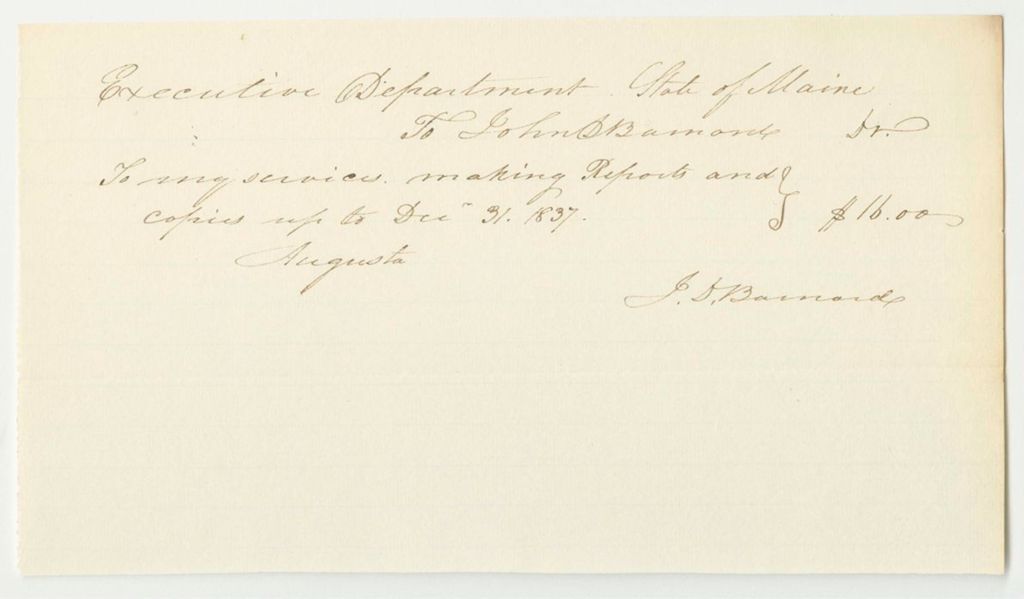 Executive Department State of Maine
To John D Barnard Dr.
To my services making Reports and
copies up to Dec 31. 1837. } $16.00
Augusta
J. D. Barnard